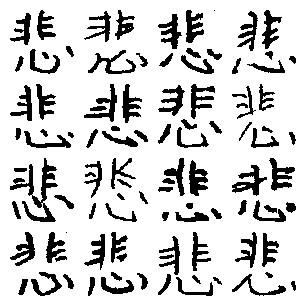 悲悲悲悲
悲悲悲悲
悲悲悲悲
悲悲悲悲